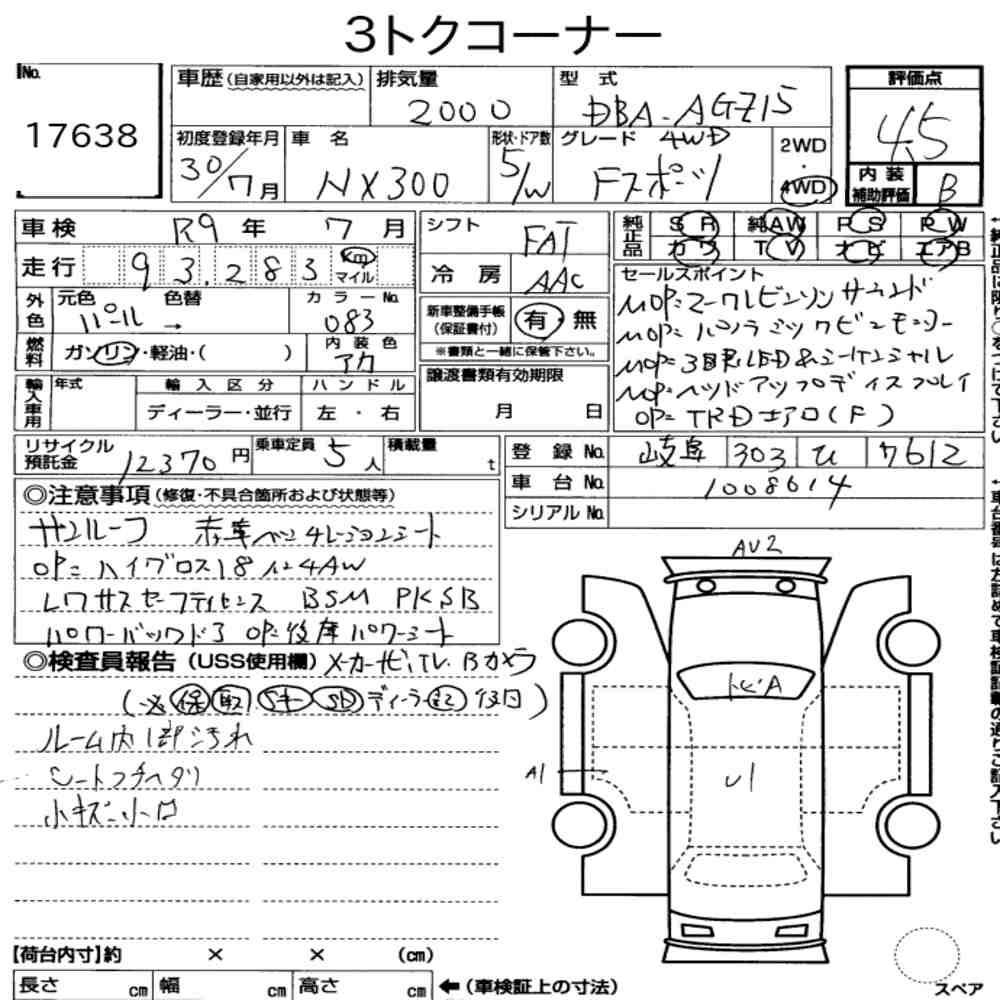 3トクコーナー
No.
17638
車歴(自家用以外は記入)
排気量
2000
型 式
DBA-AGZ15
評価点
4.5
初度登録年月
30/7月
車 名
NX300
形状・ドア数
5/W
グレード 4WD
Fスポーツ
2WD
・
4WD
内 装
補助評価
B
車検 R9 年 7 月
走行 93,283 km マイル
シフト FAT
冷 房 AAC
純正品
SR 純AW PS RW
カワ TV ナビ エアB
外色
元色 色替
パール →
カラーNo.
083
燃料
ガソリン・軽油・( )
内 装 色
アカ
新車整備手帳
(保証書付)
有・無
※書類と一緒に保管下さい。
セールスポイント
MOP=マークレビンソンサウンド
MOP=パノラミックビューモニター
MOP=3眼LED&シーケンシャル
MOP=ヘッドアップディスプレイ
OP=TRDエアロ(F)
輸入車用
年式
輸 入 区 分
ディーラー・並行
ハ ン ド ル
左・右
譲渡書類有効期限
月 日
リサイクル
預託金
12370 円
乗車定員
5人
積載量
t
登 録 No. 岐阜 303 ひ 7612
車 台 No. 1008614
シリアル No.
◎注意事項(修復・不具合箇所および状態等)
サンルーフ 赤革ベンチレーションシート
OP=ハイグロス18インチAW
レクサスセーフティセンス BSM PKSB
パワーバックドア OP=後席パワーシート
◎検査員報告(USS使用欄) メーカーナビ,TV.Bカメラ
(※保取SキーSDディーラー記後日)
ルーム内1部汚れ
シートフチヘタリ
小キズ・小凹
AV2
トビA
A1
U1
【荷台内寸】約 × × (cm)
長さ cm 幅 cm 高さ cm
←(車検証上の寸法)
スペア